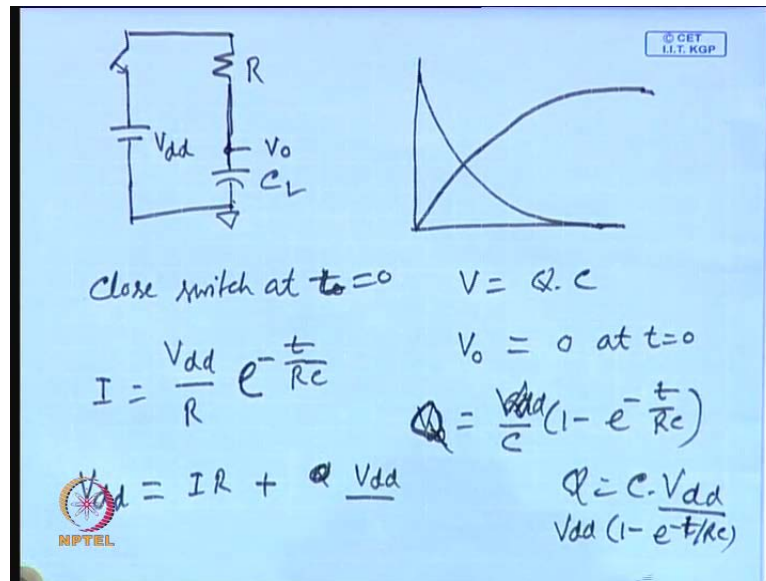 © CET
I.I.T. KGP
R
Vdd
Vo
CL
Close switch at to=0
V = Q.C
Vo = 0 at t=0
I = Vdd/R e^-t/RC
Q = Vdd/C (1 - e^-t/RC)
Vdd = IR + Q Vdd
Q = C.Vdd
Vdd (1 - e^-t/RC)
NPTEL